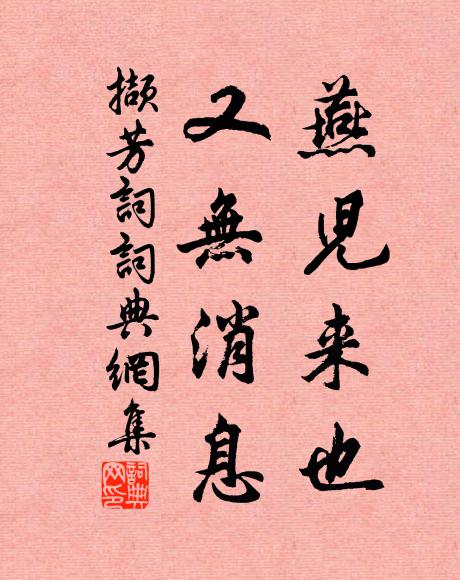 燕児来也
又無消息
擷芳詞詞典網集
詞典
网印